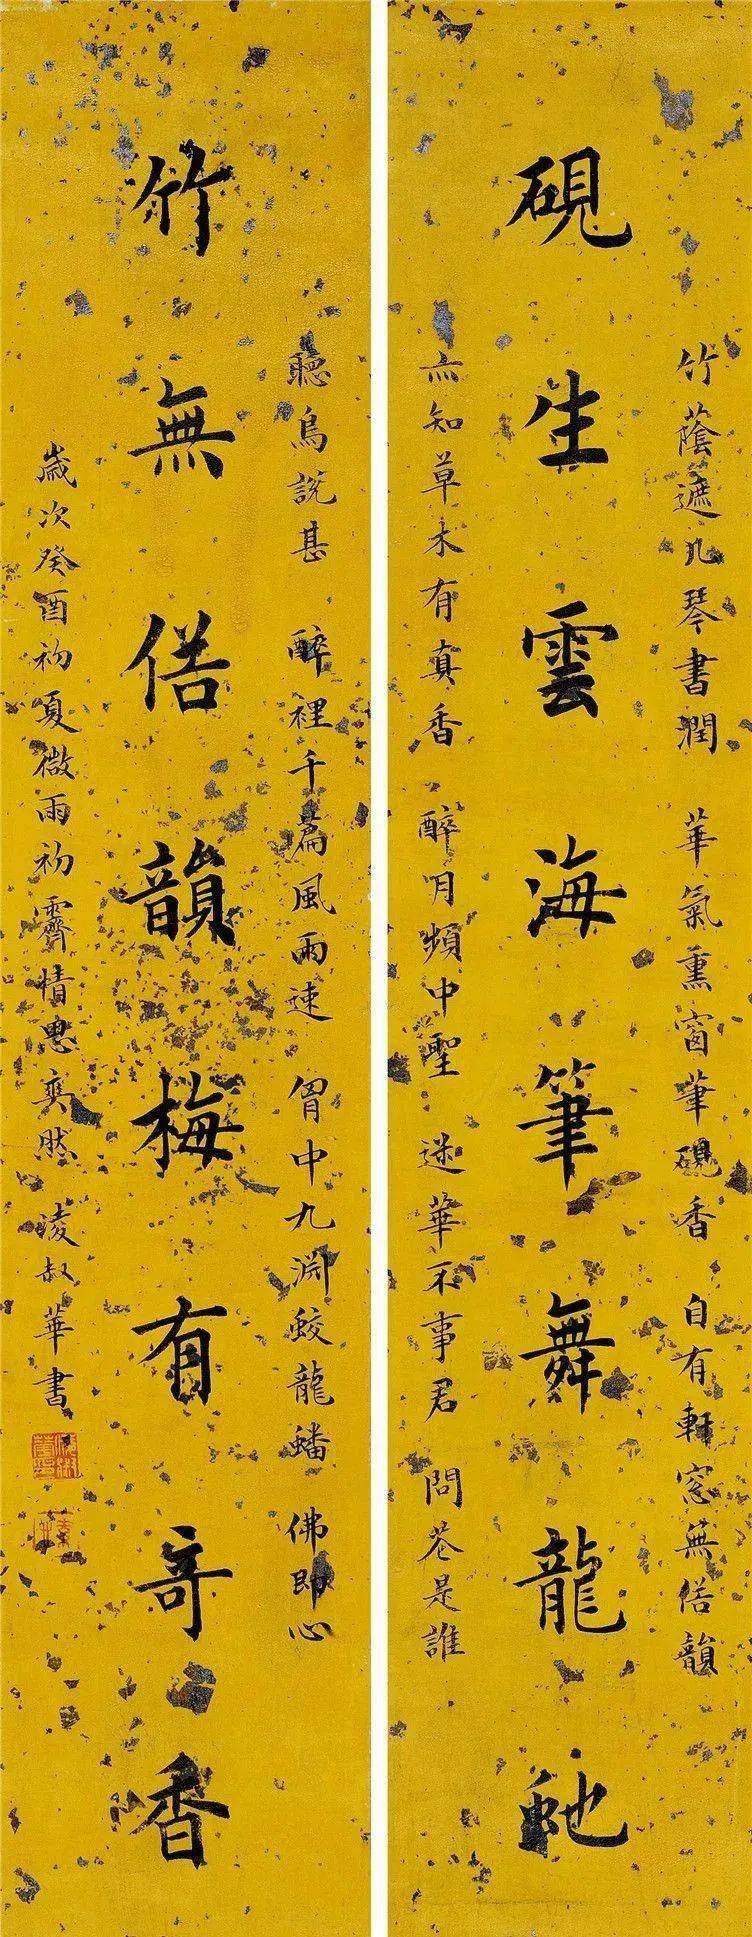 竹蔭遮几琴書潤 華氣熏窗筆硯香 自有軒窓無俗韻
硯生雲海筆舞龍虵
亦知草木有真香 醉月頻中聖 迷華不事君 問花是誰
聽鳥說甚 醉裡千篇風雨速 胷中九淵蛟龍蟠 佛即心
竹無俗韻梅有奇香
歲次癸酉初夏微雨初霽情思爽然 凌叔華書